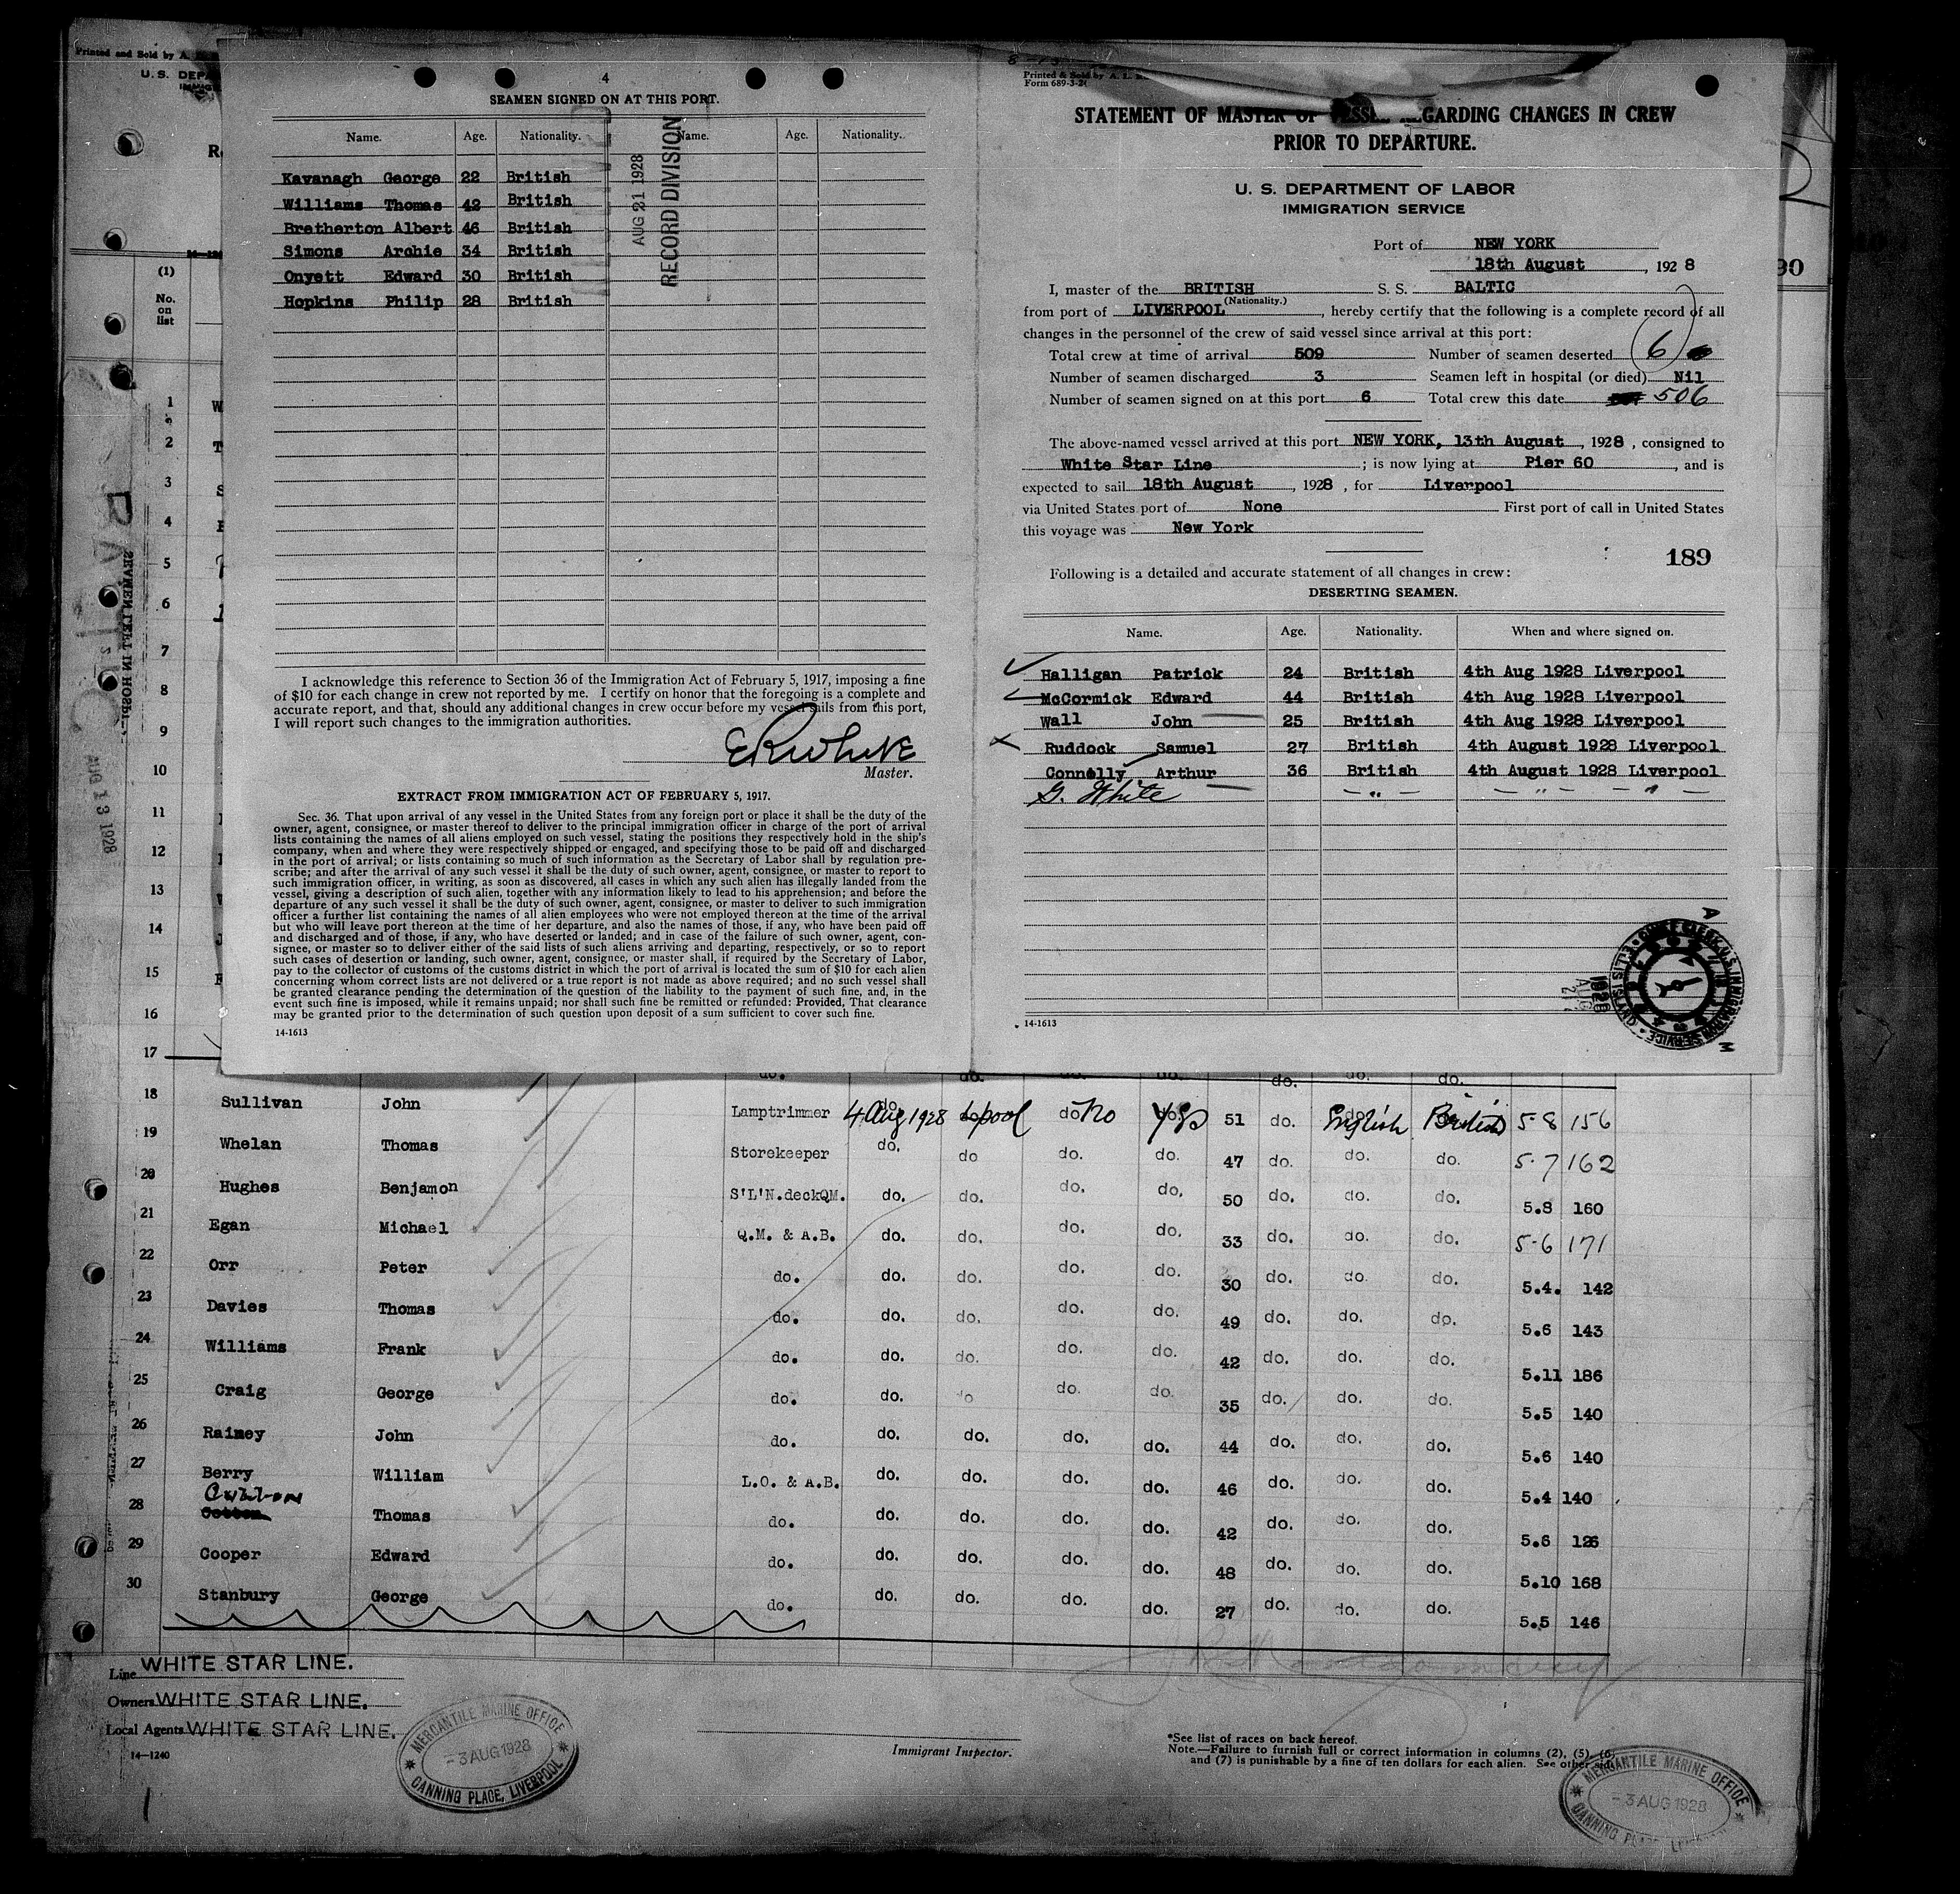 Printed and Sold by A.
U. S. DEPA
(1)
No.
on
list
4
SEAMEN SIGNED ON AT THIS PORT.
Name. Age. Nationality. Name. Age. Nationality.
Kavanagh George 22 British
Williams Thomas 42 British
Bretherton Albert 46 British
Simons Archie 34 British
Onyett Edward 30 British
Hopkins Philip 28 British
AUG 21 1928
RECORD DIVISION
I acknowledge this reference to Section 36 of the Immigration Act of February 5, 1917, imposing a fine
of $10 for each change in crew not reported by me. I certify on honor that the foregoing is a complete and
accurate report, and that, should any additional changes in crew occur before my vessel sails from this port,
I will report such changes to the immigration authorities.
E R White
Master.
EXTRACT FROM IMMIGRATION ACT OF FEBRUARY 5, 1917.
Sec. 36. That upon arrival of any vessel in the United States from any foreign port or place it shall be the duty of the
owner, agent, consignee, or master thereof to deliver to the principal immigration officer in charge of the port of arrival
lists containing the names of all aliens employed on such vessel, stating the positions they respectively hold in the ship's
company, when and where they were respectively shipped or engaged, and specifying those to be paid off and discharged
in the port of arrival; or lists containing so much of such information as the Secretary of Labor shall by regulation pre-
scribe; and after the arrival of any such vessel it shall be the duty of such owner, agent, consignee, or master to report to
such immigration officer, in writing, as soon as discovered, all cases in which any such alien has illegally landed from the
vessel, giving a description of such alien, together with any information likely to lead to his apprehension; and before the
departure of any such vessel it shall be the duty of such owner, agent, consignee, or master to deliver to such immigration
officer a further list containing the names of all alien employees who were not employed thereon at the time of the arrival
but who will leave port thereon at the time of her departure, and also the names of those, if any, who have been paid off
and discharged and of those, if any, who have deserted or landed; and in case of the failure of such owner, agent, con-
signee, or master so to deliver either of the said lists of such aliens arriving and departing, respectively, or so to report
such cases of desertion or landing, such owner, agent, consignee, or master shall, if required by the Secretary of Labor,
pay to the collector of customs of the customs district in which the port of arrival is located the sum of $10 for each alien
concerning whom correct lists are not delivered or a true report is not made as above required; and no such vessel shall
be granted clearance pending the determination of the question of the liability to the payment of such fine, and, in the
event such fine is imposed, while it remains unpaid; nor shall such fine be remitted or refunded: Provided, That clearance
may be granted prior to the determination of such question upon deposit of a sum sufficient to cover such fine.
14-1613
Printed & Sold by A. L.
Form 689-3-2
STATEMENT OF MASTER OF VESSEL REGARDING CHANGES IN CREW
PRIOR TO DEPARTURE.
U. S. DEPARTMENT OF LABOR
IMMIGRATION SERVICE
Port of NEW YORK
18th August, 1928
I, master of the BRITISH S. S. BALTIC
(Nationality.)
from port of LIVERPOOL, hereby certify that the following is a complete record of all
changes in the personnel of the crew of said vessel since arrival at this port:
Total crew at time of arrival 509 Number of seamen deserted 6
Number of seamen discharged 3 Seamen left in hospital (or died) Nil
Number of seamen signed on at this port 6 Total crew this date 506
The above-named vessel arrived at this port NEW YORK, 13th August, 1928, consigned to
White Star Line; is now lying at Pier 60, and is
expected to sail 18th August, 1928, for Liverpool
via United States port of None First port of call in United States
this voyage was New York
189
Following is a detailed and accurate statement of all changes in crew:
DESERTING SEAMEN.
Name. Age. Nationality. When and where signed on.
Halligan Patrick 24 British 4th Aug 1928 Liverpool
McCormick Edward 44 British 4th Aug 1928 Liverpool
Wall John 25 British 4th Aug 1928 Liverpool
Ruddock Samuel 27 British 4th August 1928 Liverpool
Connolly Arthur 36 British 4th August 1928 Liverpool
G. White - " - - " - " -
14-1613
90
BALTIC
AUG 13 1928
1
2
3
4
5
6
7
8
9
10
11
12
13
14
15
16
17
do. do. do. do. do. do. do.
18 Sullivan John Lamptrimmer do. 4 Aug 1928 do. Lpool do No do. Yes 51 do. do. English do. British 5-8 156
19 Whelan Thomas Storekeeper do. do do. do. 47 do. do. do. 5-7 162
20 Hughes Benjamon S'L'N.deckQM. do. do. do. do. 50 do. do. do. 5.8 160
21 Egan Michael Q.M. & A.B. do. do. do. do. 33 do. do. do. 5-6 171
22 Orr Peter do. do. do. do. do. 30 do. do. do. 5.4. 142
23 Davies Thomas do. do. do. do. do. 49 do. do. do. 5.6 143
24 Williams Frank do. do. do. do. do. 42 do. do. do. 5.11 186
25 Craig George do. do. do do. do. 35 do. do. do. 5.5 140
26 Rainey John do. do. do. do. do. 44 do. do. do. 5.6 140
27 Berry William L.O. & A.B. do. do. do. do. 46 do. do. do. 5.4 140
28 Thomas do. do. do. do. do. 42 do. do. do. 5.6 126
29 Cooper Edward do. do. do. do. do. 48 do. do. do. 5.10 168
30 Stanbury George do. do. do. do. do. 27 do. do. do. 5.5 146
Line WHITE STAR LINE.
Owners WHITE STAR LINE.
Local Agents WHITE STAR LINE.
14—1240
MERCANTILE MARINE OFFICE
-3 AUG 1928
CANNING PLACE, LIVERPOOL
Immigrant Inspector.
*See list of races on back hereof.
Note.—Failure to furnish full or correct information in columns (2), (5), (6)
and (7) is punishable by a fine of ten dollars for each alien. See other side.
MERCANTILE MARINE OFFICE
-3 AUG 1928
CANNING PLACE